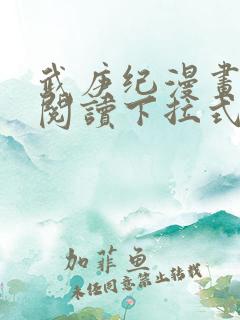 武庚纪漫畫
閱讀下拉式
加菲鱼
未经同意禁止转载